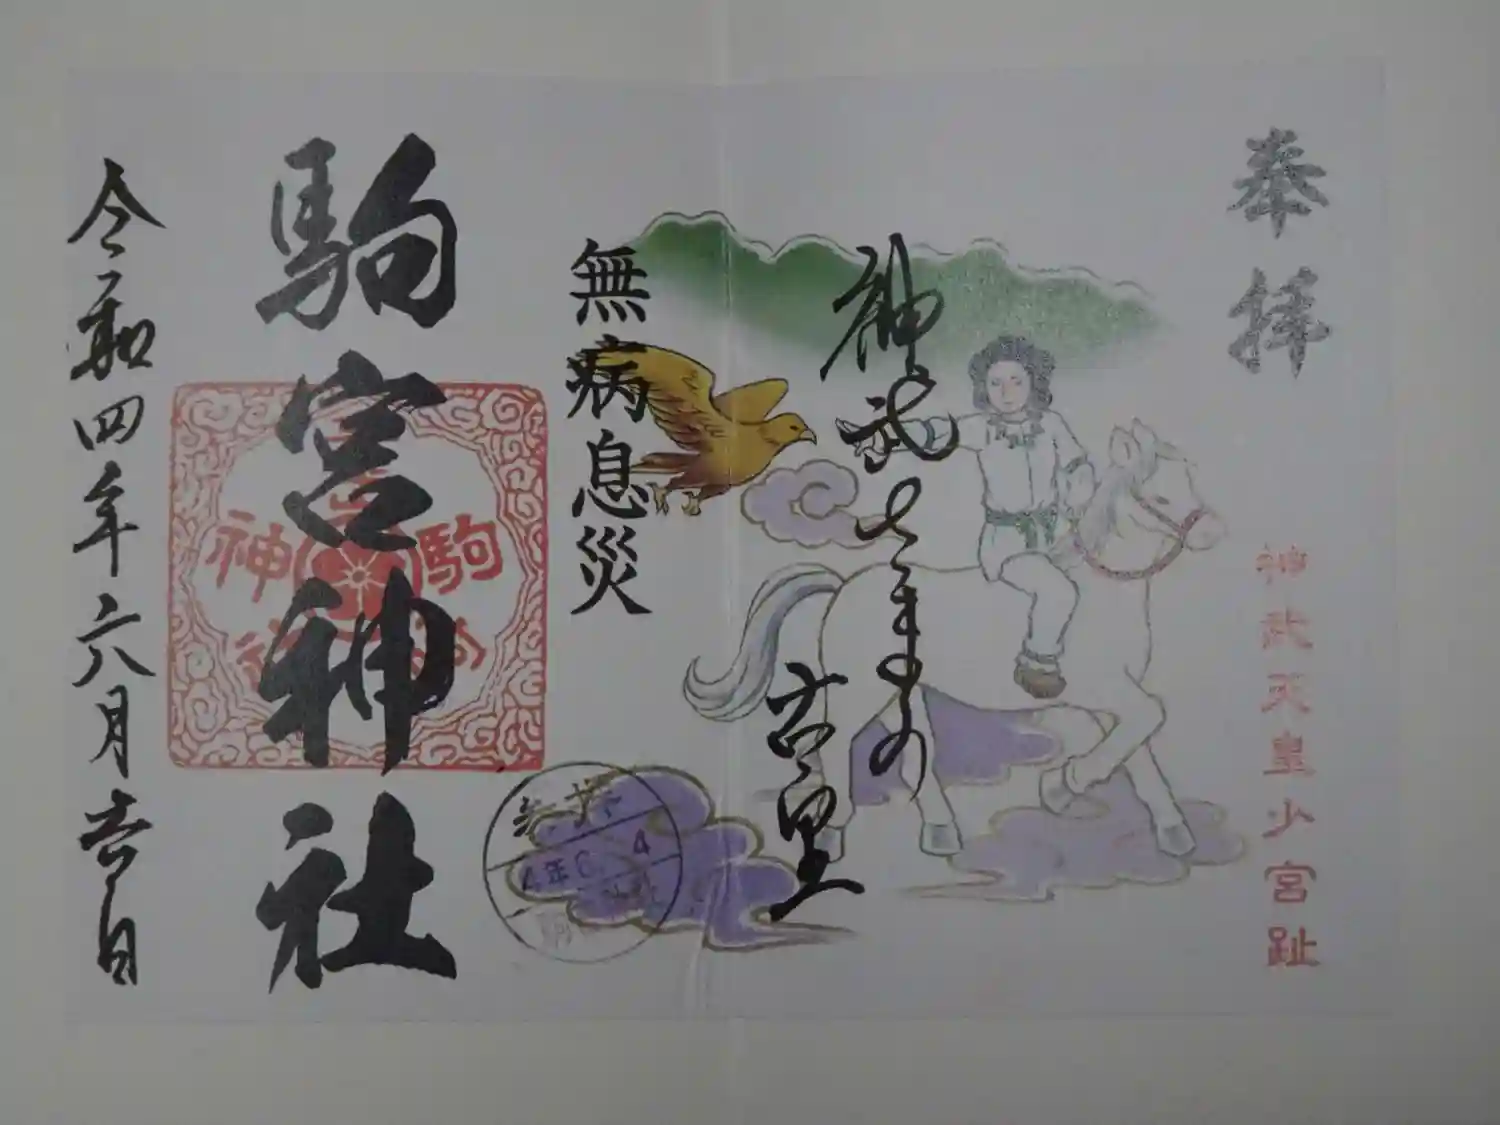 奉拝
神武天皇少宮趾
神武天皇の
古里
無病息災
駒宮神社
駒
神
4年6. 4
令和四年六月吉日